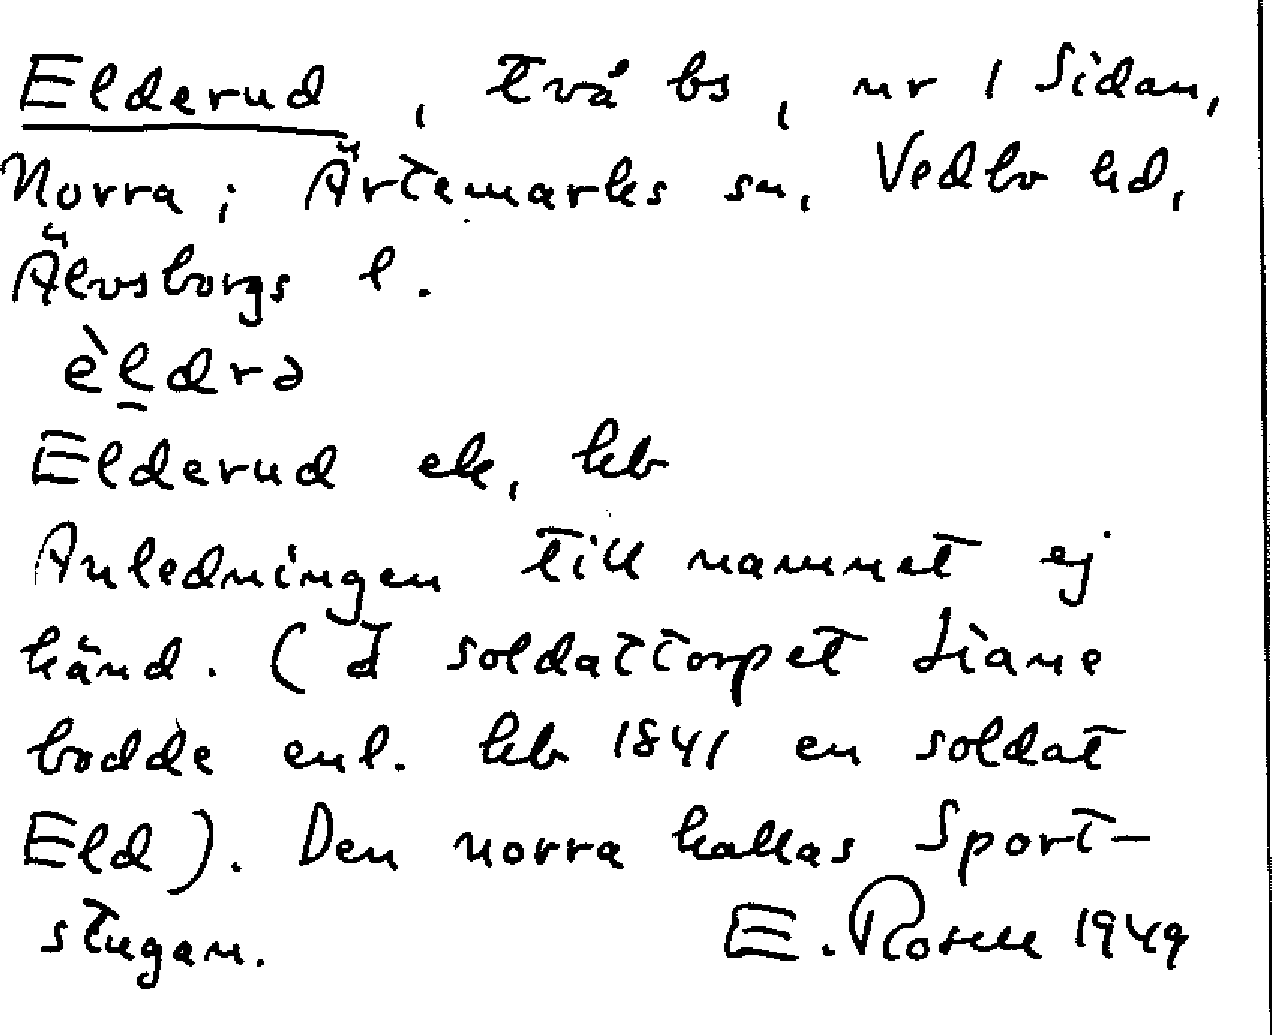 Elderud, två bs, nr 1 Sidan,
Norra; Ärtemarks sn, Vedbo hd,
Älvsborgs l.
èl̠drə
Elderud ek, kb
Anledningen till namnet ej
känd. (I soldattorpet Liane
bodde enl. kb 1841 en soldat
Eld). Den norra kallas Sport-
stugan. E. Rosell 1949